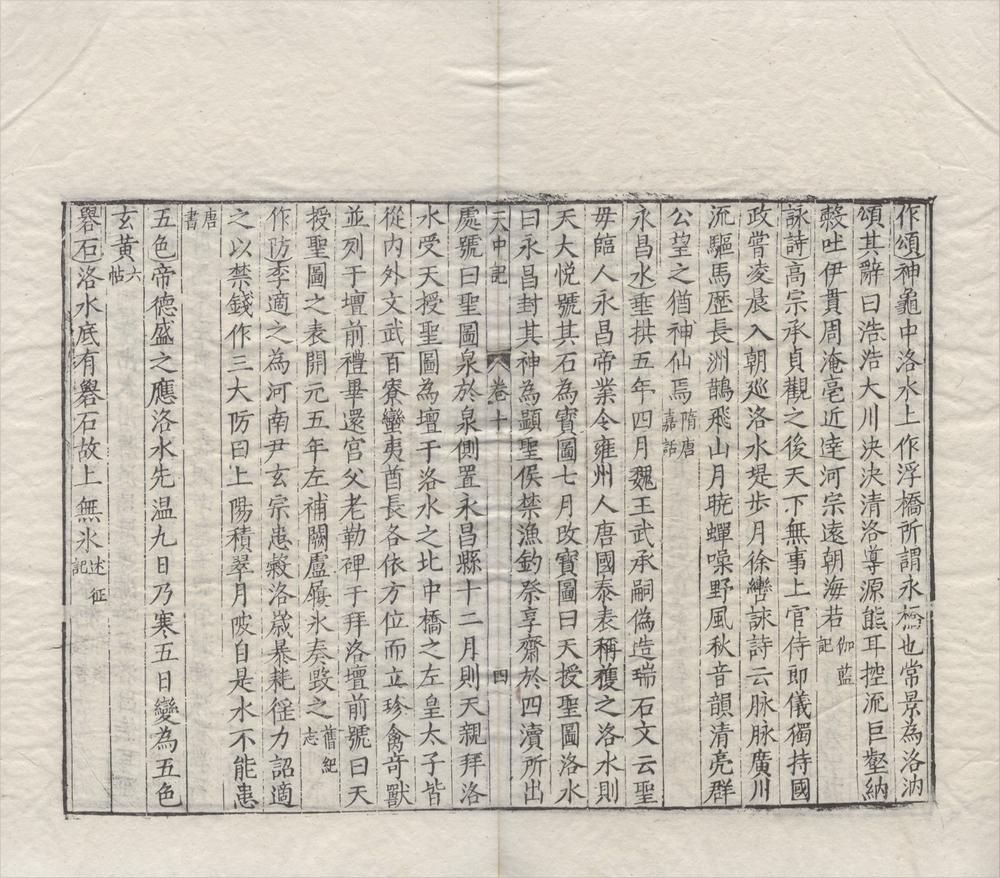 作頌神龜中洛水上作浮橋所謂永橋也常景為洛汭
頌其辭曰浩浩大川泱泱清洛導源熊耳控流巨壑納
穀吐伊貫周淹亳近達河宗遠朝海若伽藍記
詠詩高宗承貞觀之後天下無事上官侍郎儀獨持國
政嘗凌晨入朝廵洛水堤步月徐轡詠詩云脉脉廣川
流驅馬歴長洲鵲飛山月暁蟬噪野風秋音韻清亮群
公望之猶神仙焉隋唐嘉話
永昌水垂拱五年四月魏王武承嗣偽造瑞石文云聖
毋臨人永昌帝業令雍州人唐國泰表稱獲之洛水則
天大悅號其石為寳圖七月改寳圖曰天授聖圖洛水
曰永昌封其神為顯聖侯禁漁釣祭享齋於四瀆所出
天中記 卷十 四
處號曰聖圖泉於泉側置永昌縣十二月則天親拜洛
水受天授聖圖為壇于洛水之北中橋之左皇太子皆
從內外文武百寮蠻夷酋長各依方位而立珍禽竒獸
並列于壇前禮畢還宫父老勒碑于拜洛壇前號曰天
授聖圖之表開元五年左補闕盧履氷奏毀之舊紀志
作防李適之為河南尹玄宗患穀洛歲暴耗徭力詔適
之以禁錢作三大防曰上陽積翠月陂自是水不能患
唐書
五色帝德盛之應洛水先温九日乃寒五日變為五色
玄黃六帖
礜石洛水底有礜石故上無氷述征記